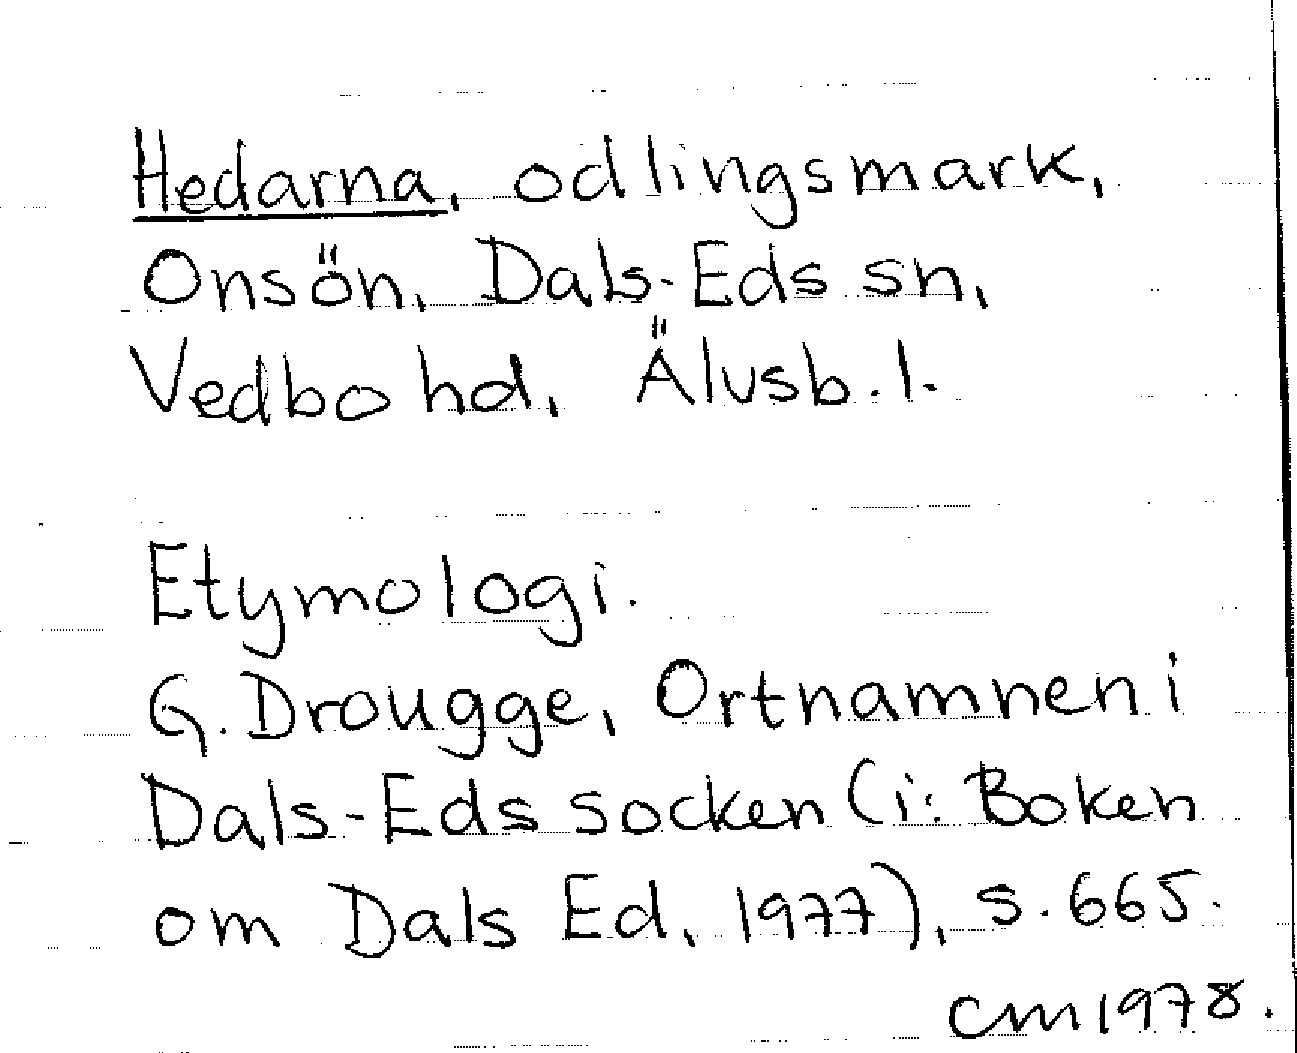 Hedarna, odlingsmark,
Onsön, Dals-Eds sn,
Vedbo hd, Älvsb.l.
Etymologi.
G. Drougge, Ortnamnen i
Dals-Eds socken (i: Boken
om Dals Ed, 1977), s. 665.
CM 1978.